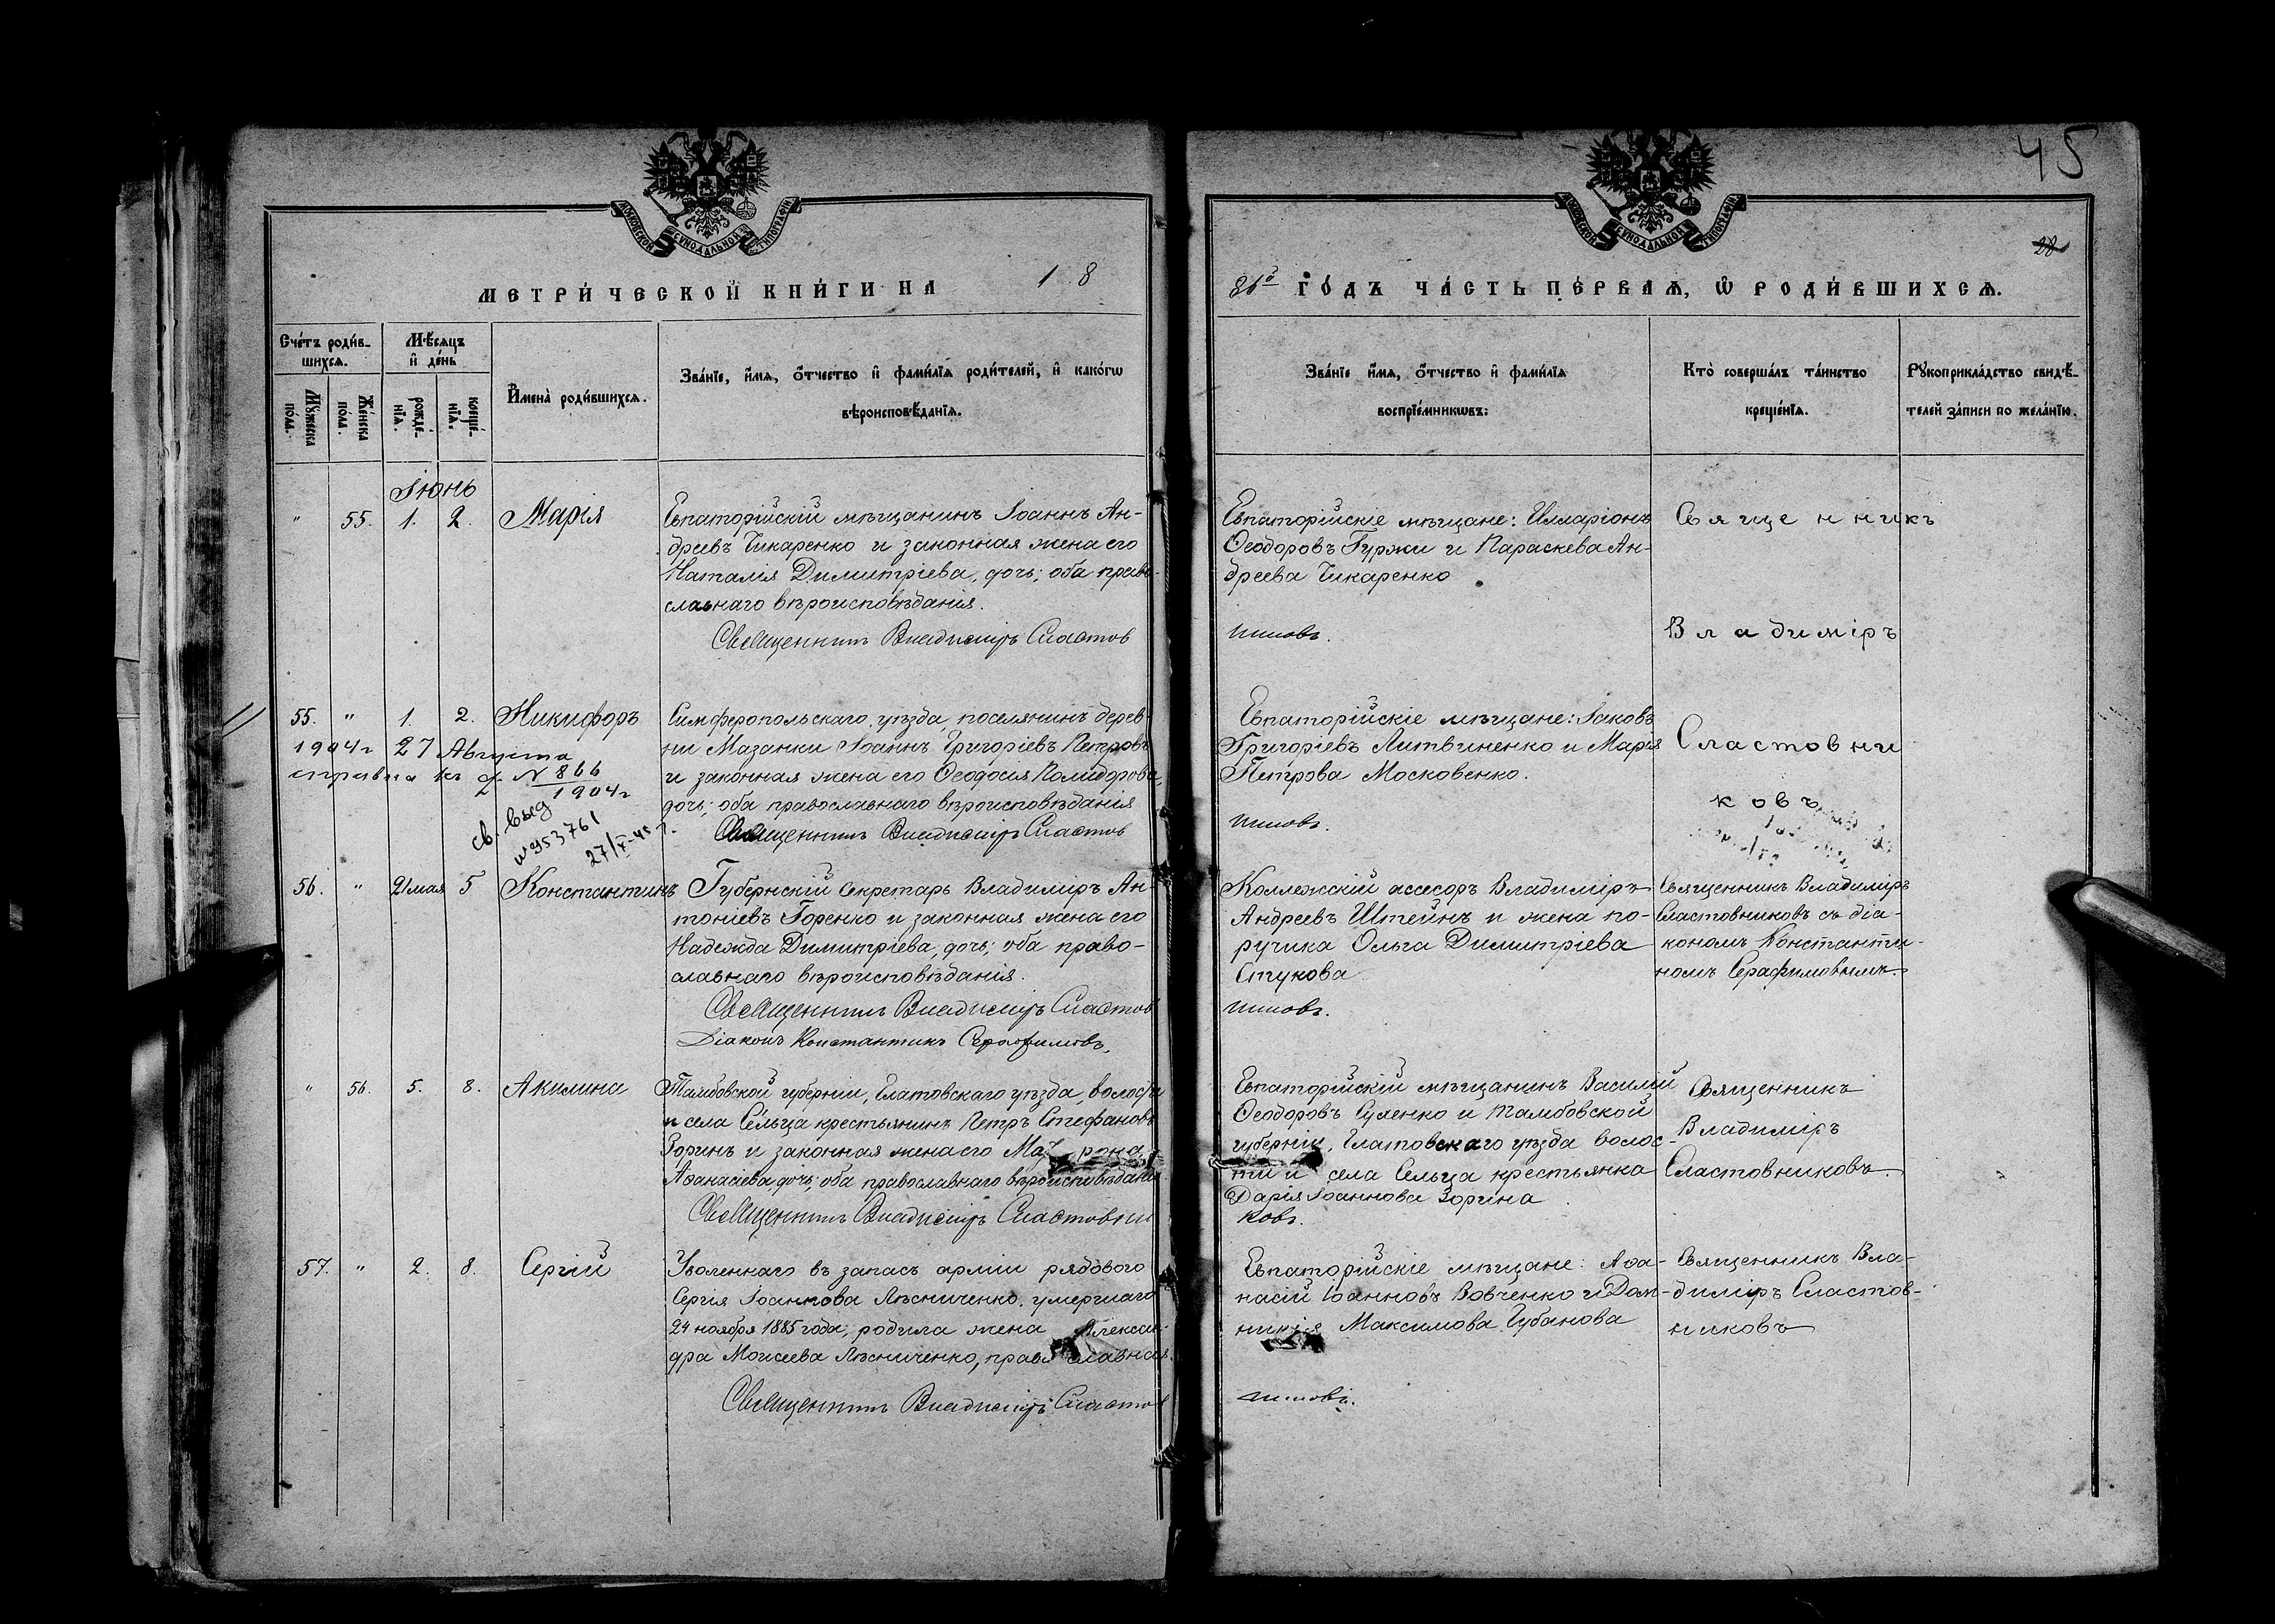 45
МОСКОВСКОЙ СУНОДАЛЬНОЙ ТИПОГРАФІИ
МОСКОВСКОЙ СУНОДАЛЬНОЙ ТИПОГРАФІИ
28
МЕТРИ́ЧЕСКОЙ КНИ́ГИ НА 18
86й ГО́ДЪ ЧА́СТЬ ПЕ́РВАѦ, Ѿ РОДИ́ВШИХСѦ.
Сче́тъ роди́в-
шихсѧ.
Мꙋ́жеска по́ла.
Же́нска по́ла.
Мѣ́сѧцъ
и҆ де́нь
рожде́-
нїѧ.
креще́-
нїѧ.
И҆мена̀ роди́вшихсѧ.
Зва́нїе, и҆́мѧ, ѻ҆́тчество и҆ фами́лїѧ роди́телей, и҆ како́гѡ
вѣроисповѣ́данїѧ.
Зва́нїе и҆́мѧ, ѻ҆́тчество и҆ фами́лїѧ
воспрїе́мникѡвъ:
Кто̀ соверша́лъ та́инство
креще́нїѧ.
Рꙋкоприкла́дство свидѣ́-
телей за́писи по жела́нїю.
Іюнь
" 55. 1. 2. Марія
Евпаторійскій мѣщанинъ Іоаннъ Ан-
дреевъ Чикаренко и законная жена его
Наталія Димитріева, дочь; оба право-
славнаго вѣроисповѣданія.
Священникъ Владиміръ Сластов
Евпаторійскіе мѣщане: Илларіонъ
Ѳеодоровъ Гуржи и Параскева Ан-
дреева Чикаренко
никовъ.
Священникъ
Владиміръ
55. " 1. 2. Никифоръ
1904г 27 Августа
справка къ д. N 866
1904г
св. выд
N 953761
27/X-45 г.
Симферопольскаго уѣзда, поселянинъ дерев-
ни Мазанки Іоаннъ Григоріевъ Петровъ
и законная жена его Ѳеодосія Полидорова,
дочь; оба православнаго вѣроисповѣданія
Священникъ Владиміръ Сластов
Евпаторійскіе мѣщане: Іаковъ
Григоріевъ Литвиненко и Марія
Петрова Московенко.
никовъ.
Сластовни
ковъ
56. " 21 мая 5 Константинъ
Губернскій секретарь Владиміръ Ан-
тоніевъ Горенко и законная жена его
Надежда Димитріева, дочь; оба право-
славнаго вѣроисповѣданія.
Священникъ Владиміръ Сластов
Діаконъ Константинъ Серафимовъ.
Коллежскій ассесоръ Владиміръ
Андреевъ Штейнъ и жена по-
ручика Ольга Димитріева
Стукова
никовъ.
Священникъ Владиміръ
Сластовниковъ съ діа-
кономъ Константи-
номъ Серафимовымъ
" 56. 5. 8. Акилина
Тамбовской губерніи, Елатовскаго уѣзда, волости
и села Сельца крестьянинъ Петръ Стефановъ
Зоринъ и законная жена его Матрона
Аѳанасіева, дочь; оба православнаго вѣроисповѣданія
Священникъ Владиміръ Сластовни
Евпаторійскій мѣщанинъ Василій
Ѳеодоровъ Суленко и Тамбовской
губерніи, Елатовскаго уѣзда волос-
ти и села Сельца крестьянка
Дарія Іоаннова Зорина
ковъ.
Священникъ
Владиміръ
Сластовниковъ
57. " 2. 8. Сергій
Уволеннаго въ запасъ арміи рядового
Сергія Іоаннова Лѣсниченко, умершаго
24 ноября 1885 года, родила жена Алексан-
дра Моисеева Лѣсниченко, православная.
Священникъ Владиміръ Сластов
Евпаторійскіе мѣщане: Аѳа-
насій Іоанновъ Вовченко и Дом-
никія Максимова Губанова
никовъ.
Священникъ Вла-
диміръ Сластов-
никовъ